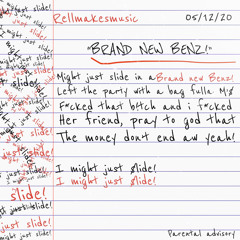 Rellmakesmusic 05/12/20
"BRAND NEW BENZ!"
Might just slide in a Brand new Benz!
Left the party with a bag fulla M's
F*cked that b!tch and i f*cked
Her friend, pray to god that
The money don't end aw yeah!
I might just $lide!
I might just slide!
Parental advisory
slide!
just slide!
just slide!
slide!